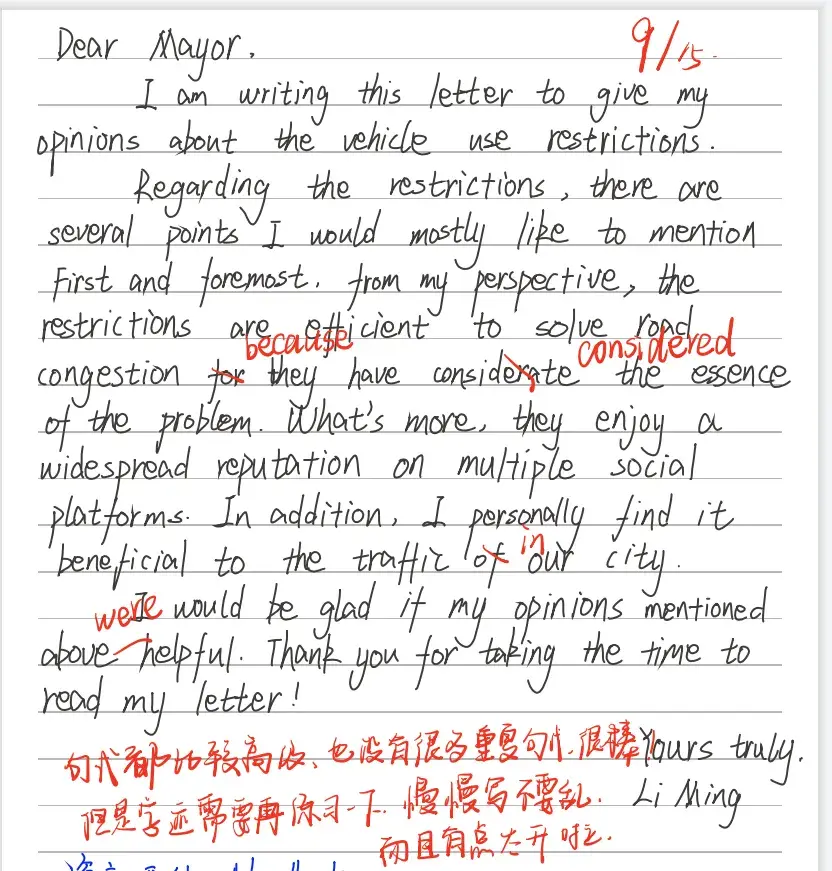 Dear Mayor.
9/15.
I am writing this letter to give my
opinions about the vehicle use restrictions.
Regarding the restrictions, there are
several points I would mostly like to mention
First and foremost, from my perspective, the
restrictions are efficient to solve road
because considered
congestion for they have considerate the essence
of the problem. What's more, they enjoy a
widespread reputation on multiple social
platforms. In addition, I personally find it
in
beneficial to the traffic of our city.
were
I would be glad if my opinions mentioned
above helpful. Thank you for taking the time to
read my letter!
句式都比较高级、也没有很多重复句式、很棒!
Yours truly.
但是字还需要再练习一下. 慢慢写不要乱.
Li Ming
而且有点太开啦.